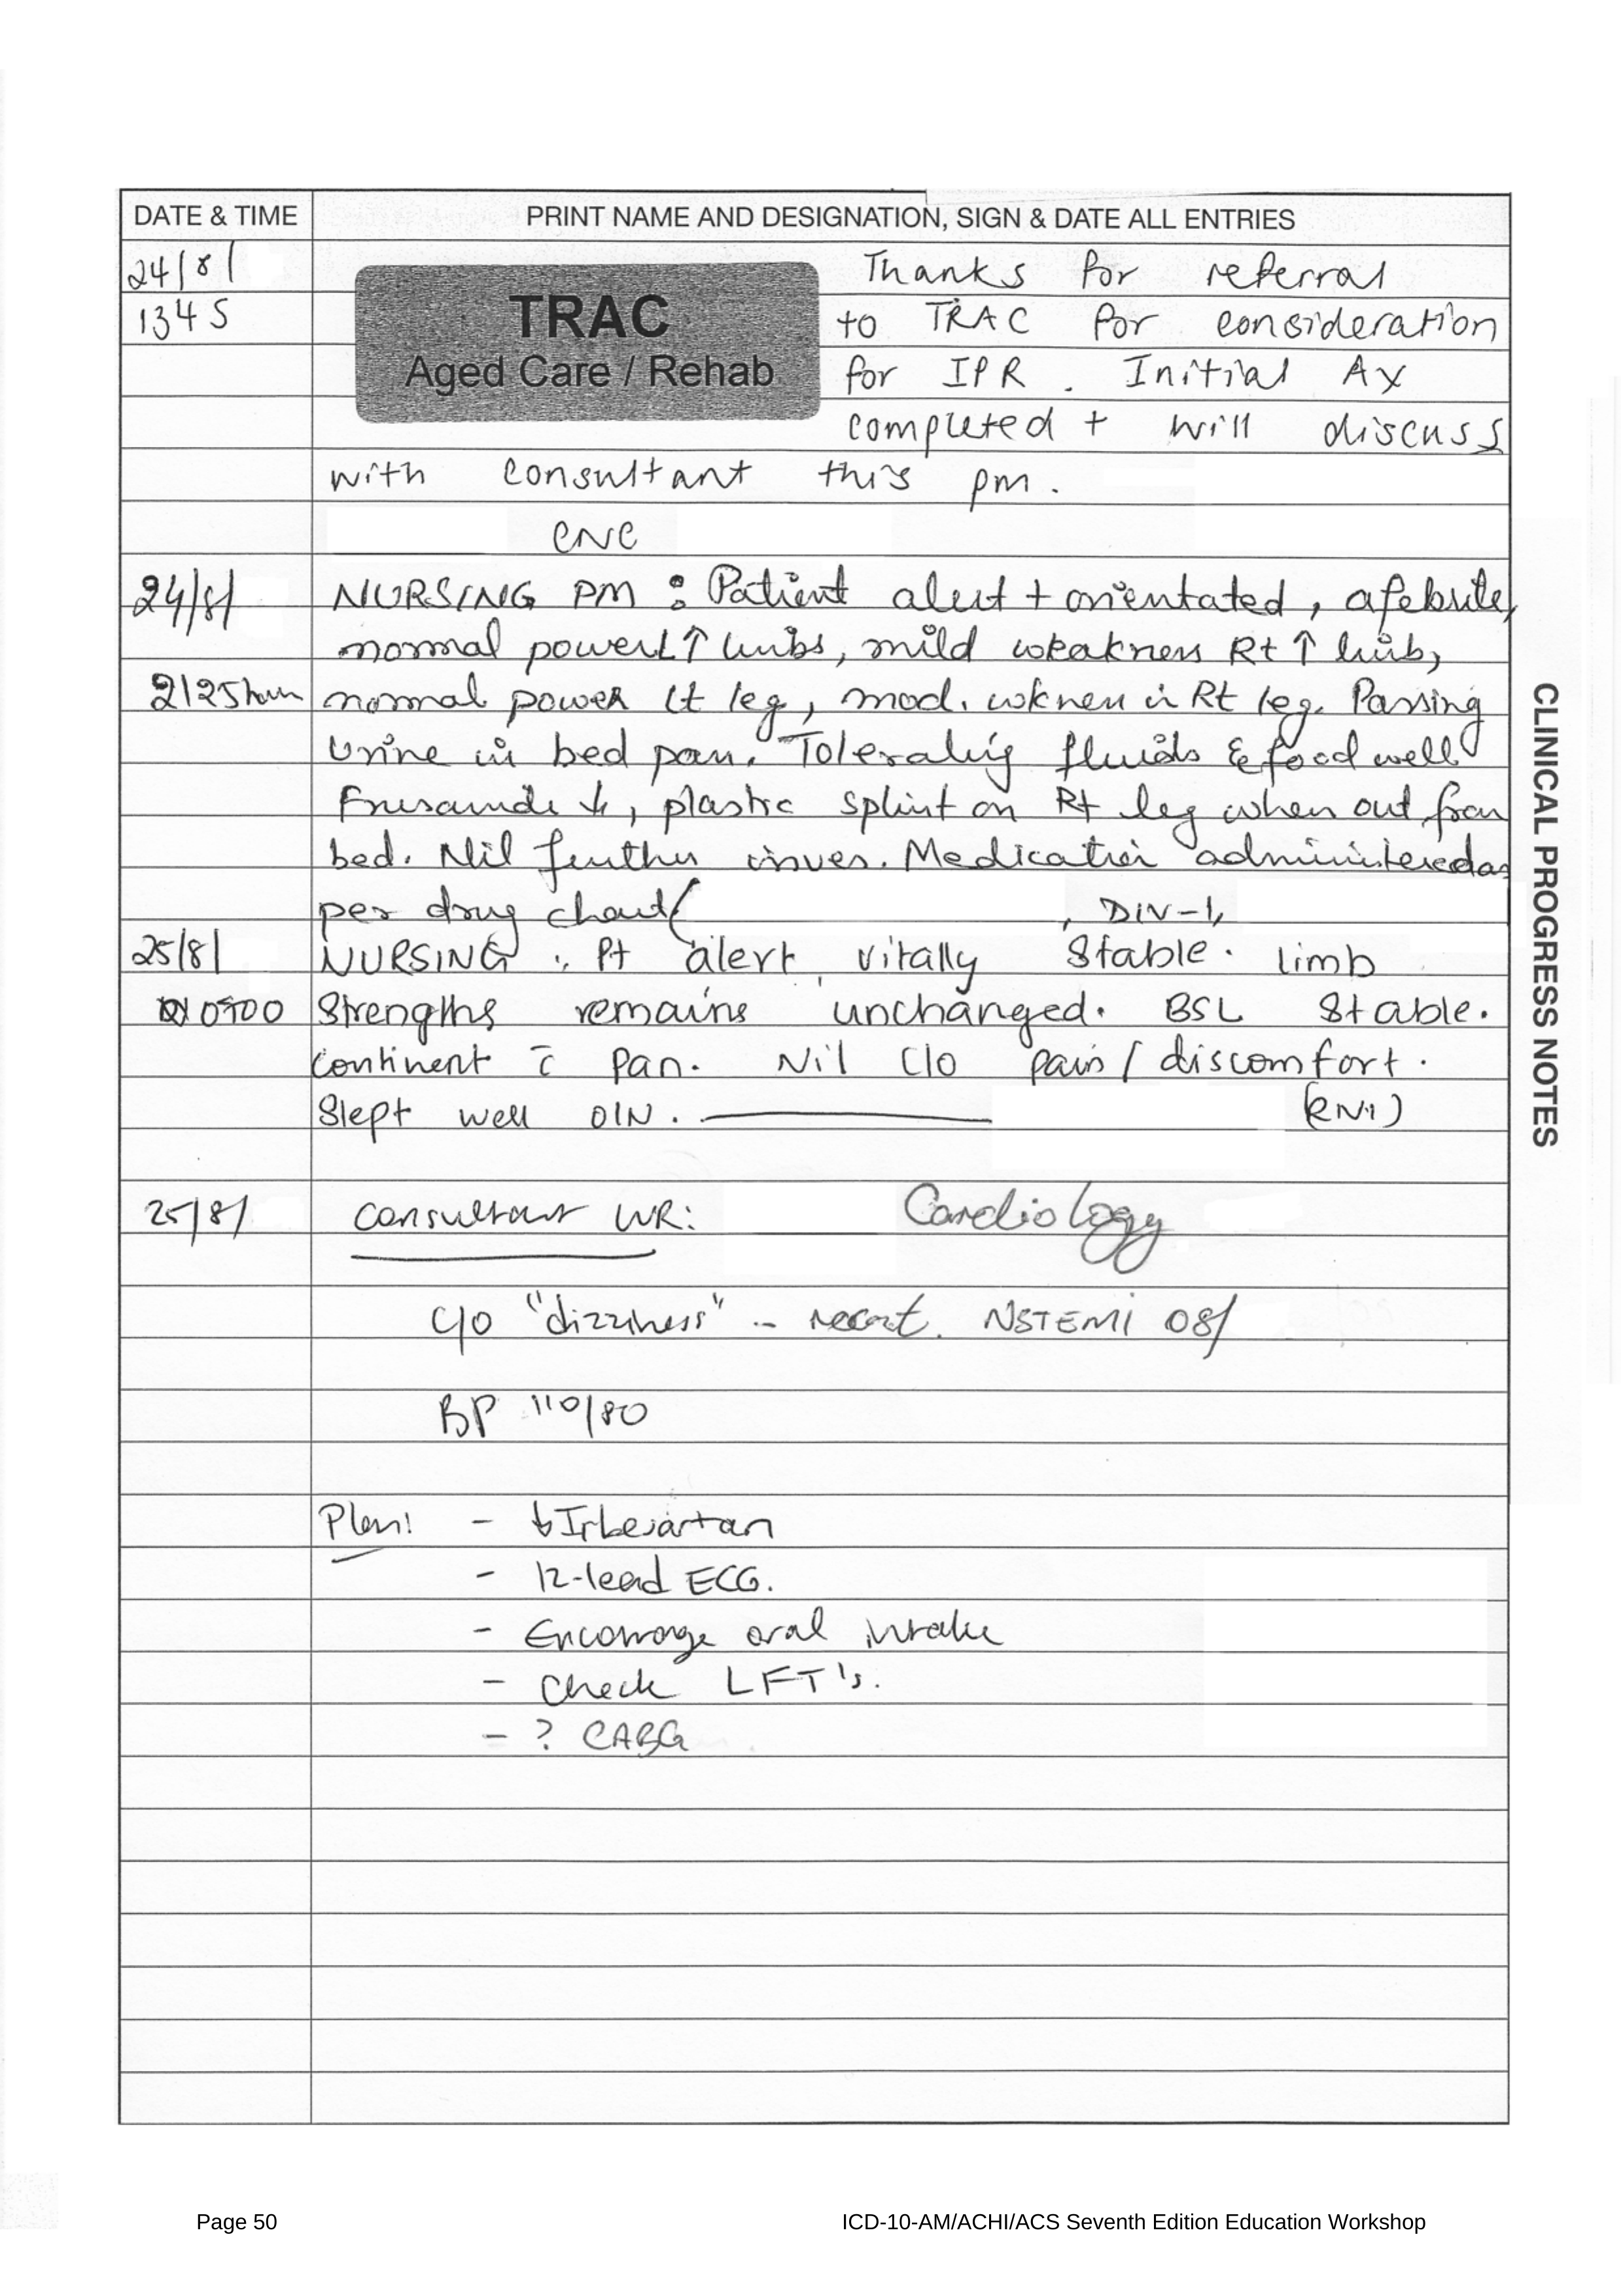 DATE & TIME PRINT NAME AND DESIGNATION, SIGN & DATE ALL ENTRIES
24/8/ Thanks for referral
1345 TRAC to TRAC for consideration
Aged Care / Rehab for IPR. Initial Ax
completed + will discuss
with consultant this pm.
CNC
24/8/ NURSING PM : Patient alert + orientated, afebrile,
normal power L↑ limbs, mild weakness Rt ↑ limb,
2125 normal power Lt leg, mod. wkness in Rt leg. Passing
Urine in bed pan. Tolerating fluids & food well
plastic splint on Rt leg when out from
bed. Nil further issues. Medication administered as
per drug chart , DIV-1,
25/8/ NURSING : Pt alert, vitally Stable. limb
0500 Strengths remains unchanged. BSL Stable.
continent c̄ pan. Nil C/O pain / discomfort.
Slept well O/N. (RN1)
25/8/ Consultant WR: Cardiology
C/O "dizziness" - recent. NSTEMI 08/
BP 110/80
Plan: - ↓Irbesartan
- 12-lead ECG.
- Encourage oral intake
- Check LFT's.
- ? CABG
CLINICAL PROGRESS NOTES
Page 50 ICD-10-AM/ACHI/ACS Seventh Edition Education Workshop